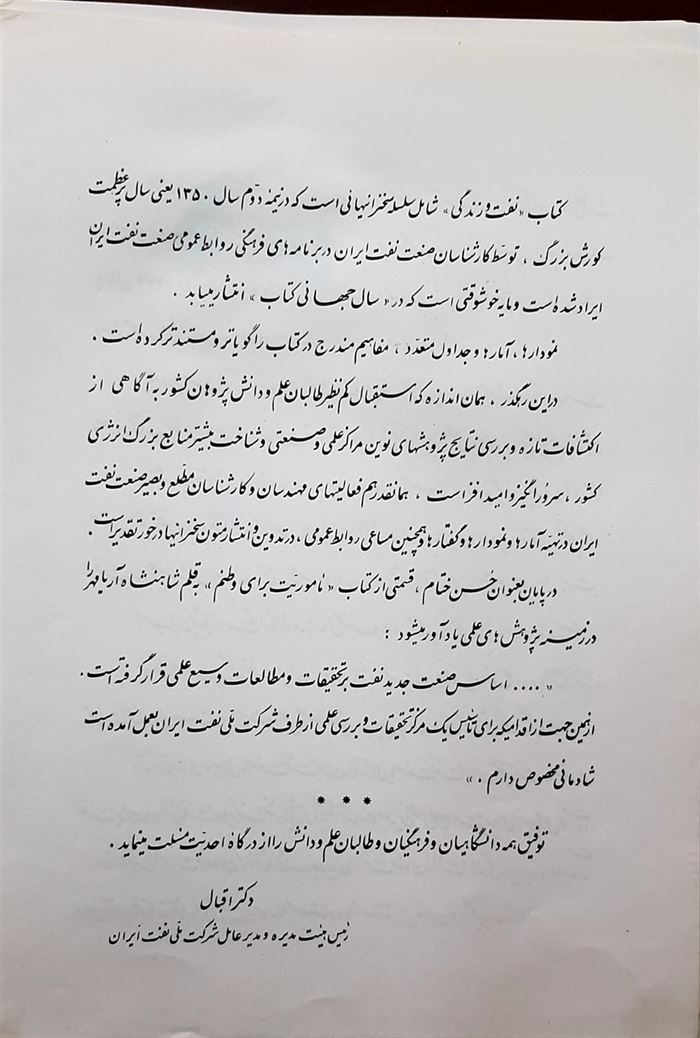 کتاب «نفت و زندگی» شامل سلسله سخنرانیهائی است که در نیمه دوّم سال ۱۳۵۰ یعنی سال پر عظمت
کورش بزرگ ، توسط کارشناسان صنعت نفت ایران در برنامه های فرهنگی روابط عمومی صنعت نفت ایران
ایراد شده است و مایه خوشوقتی است که در «سال جهانی کتاب» انتشار مییابد .
نمودارها ، آمارها و جداول متعدّد ، مفاهیم مندرج در کتاب را گویاتر و مستندتر کرده است .
در این رهگذر ، همان اندازه که استقبال کم نظیر طالبان علم و دانش پژوهان کشور به آگاهی از
اکتشافات تازه و بررسی نتایج پژوهشهای نوین مراکز علمی و صنعتی و شناخت بیشتر منابع بزرگ انرژی
کشور ، سرورانگیز و امید افزاست ، همانقدر هم فعالیتهای مهندسان و کارشناسان مطلع و بصیر صنعت نفت
ایران در تهیّه آمارها و نمودارها و گفتارها و همچنین مساعی روابط عمومی ، در تدوین و انتشار متون سخنرانیها درخور تقدیر است .
در پایان بعنوان حُسن ختام ، قسمتی از کتاب «مأموریّت برای وطنم» به قلم شاهنشاه آریامهر را
در زمینه پژوهش های علمی یادآور میشود :
« .... اساس صنعت جدید نفت بر تحقیقات و مطالعات وسیع علمی قرار گرفته است .
از همین جهت از اقدامیکه برای تأسیس یک مرکز تحقیقات و بررسی علمی از طرف شرکت ملّی نفت ایران بعمل آمده است
شادمانی مخصوص دارم . »
* * *
توفیق همه دانشگاهیان و فرهنگیان و طالبان علم و دانش را از درگاه احدیّت مسئلت مینماید .
دکتر اقبال
رئیس هیئت مدیره و مدیر عامل شرکت ملّی نفت ایران